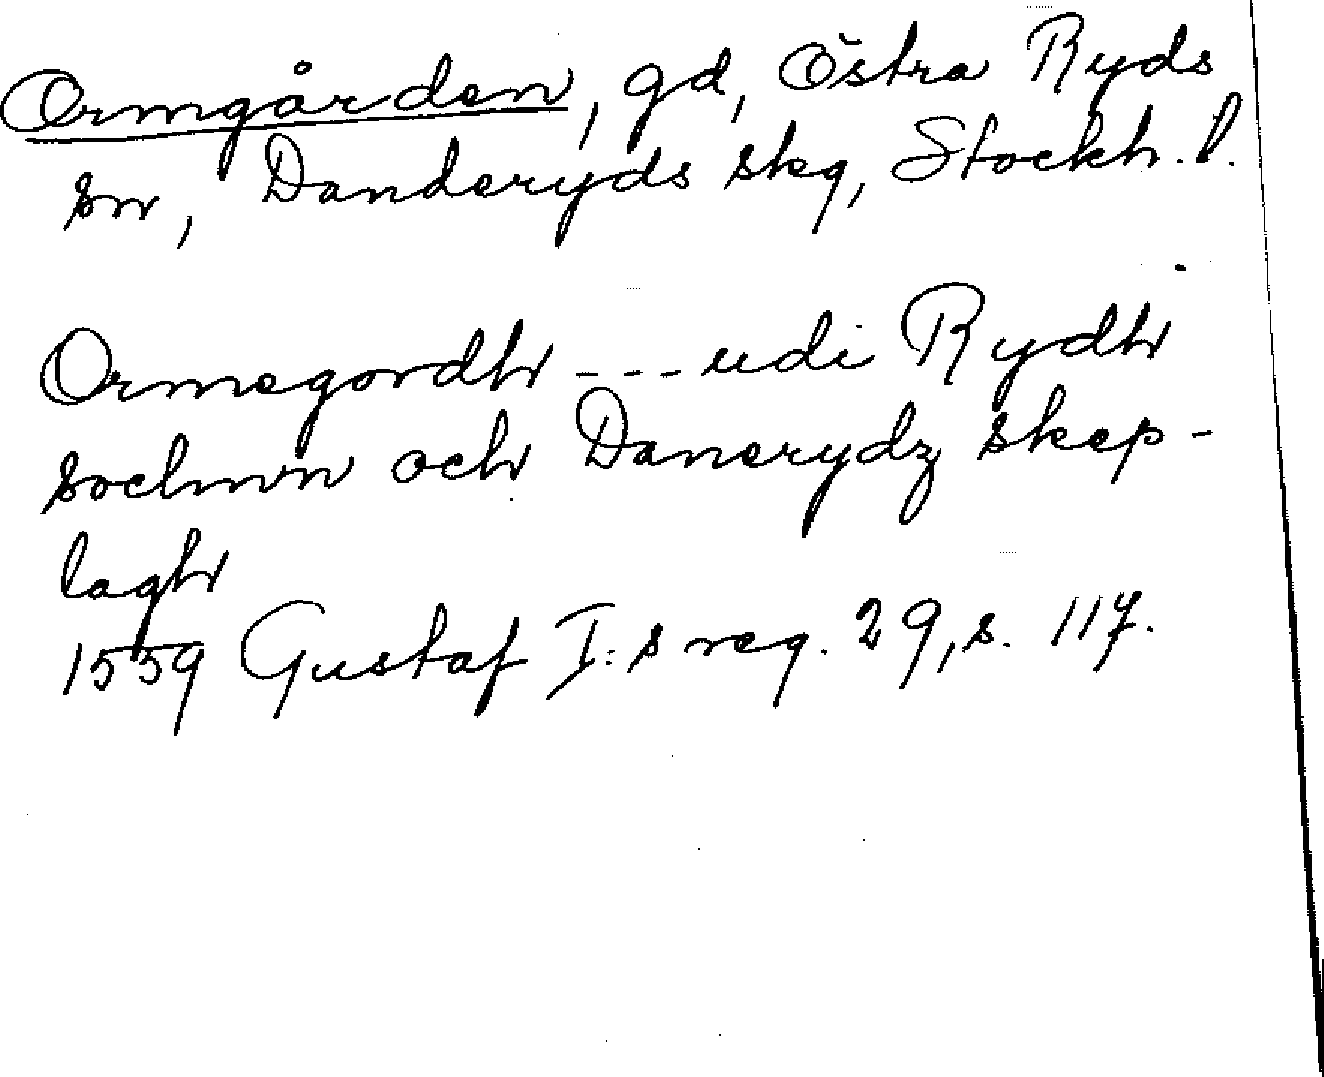 Ormgården, gd, Östra Ryds
sn, Danderyds skg, Stockh. l.
Ormegordh --- udi Rydh
sochnn och Danerydz skep-
lagh
1559 Gustaf I:s reg. 29, s. 117.